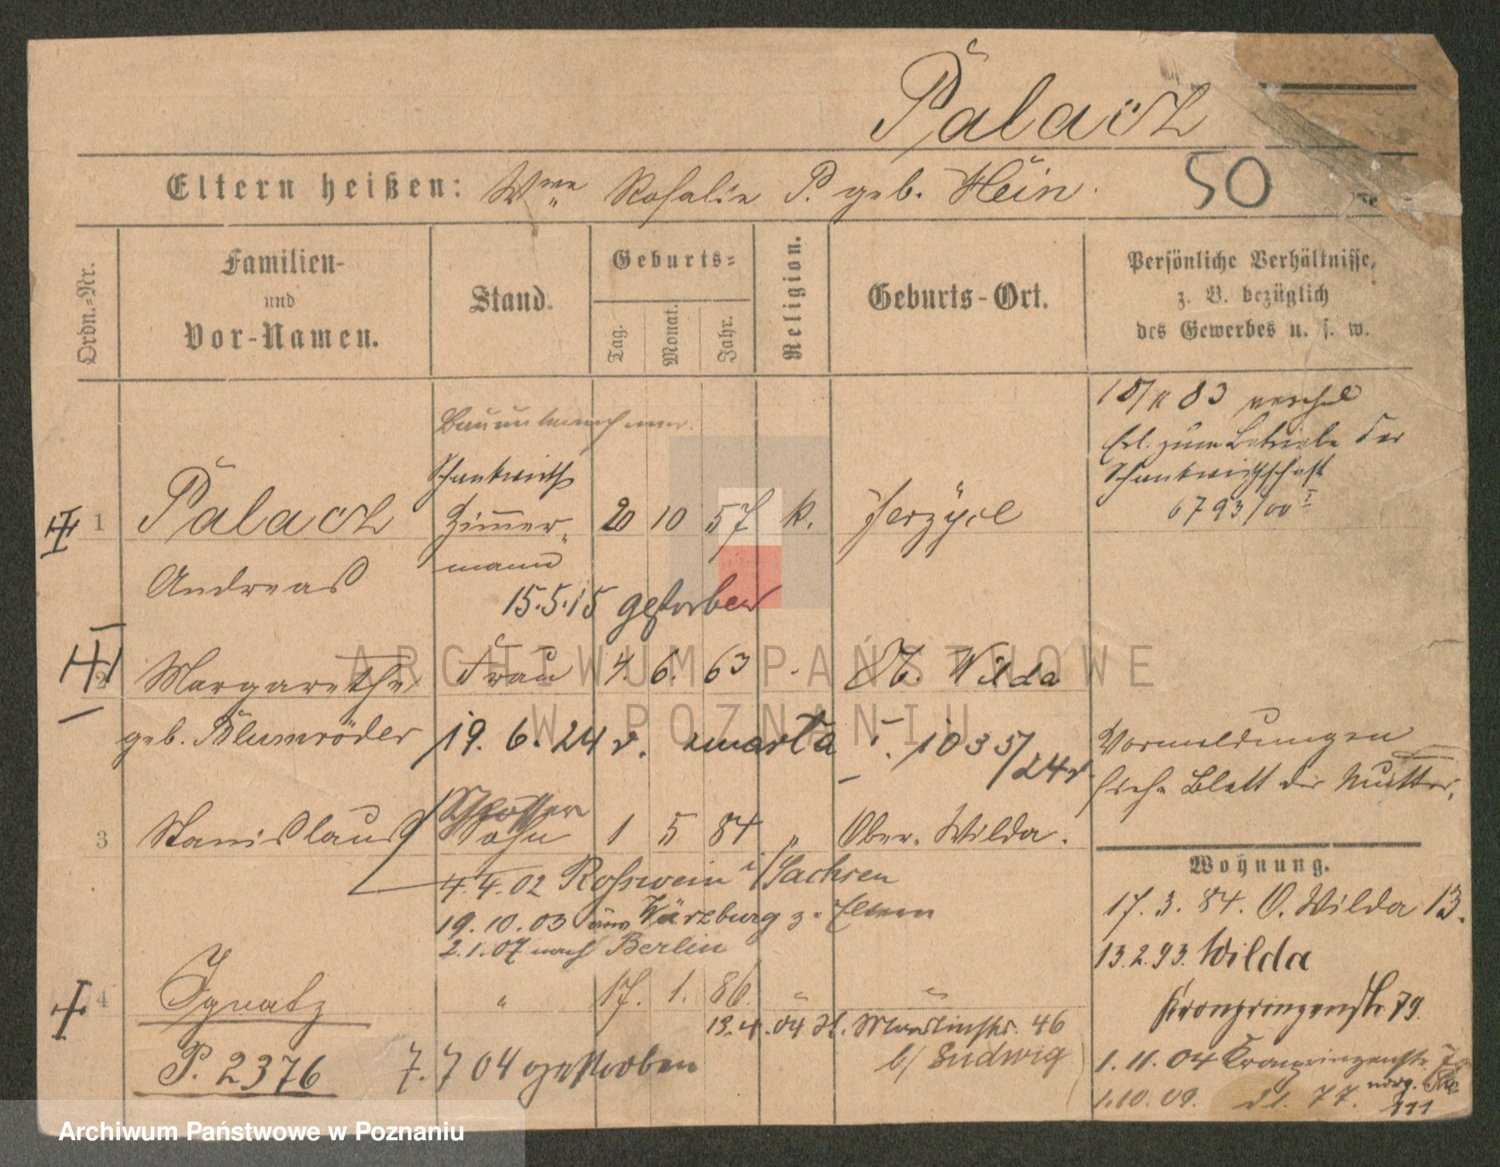 Palacz
Eltern heißen: Wwe Rosalie P. geb. Hein.
50
Ordn.-Nr.
Familien- und Vor-Namen.
Stand.
Geburts-
Tag. Monat. Jahr.
Religion.
Geburts-Ort.
Persönliche Verhältnisse,
z. B. bezüglich
des Gewerbes u. s. w.
Bauunternehmer.
Schankwirth
1 Palacz Zimmer- 20 10 57 k. Jerzyce
Andreas mann
15.5.15 gestorben
83
Erl. zum Betriebe der
Schankwirthschaft
6793/00 I
2 Margarethe Frau 4. 6. 63 Ob. Wilda
geb. Blumröder 19. 6. 24 v. umarła 1035/24
Vormeldungen
siehe Blatt der Mutter.
Schlosser
3 Stanislaus Sohn 1 5 84 " Ober-Wilda.
4.4.02 Rosswein i/Sachsen
19.10.03 aus Würzburg z. Eltern
2.1.07 nach Berlin
4 Ignatz " 17. 1. 86. " "
13.4.04 Martinstr. 46
b/ Ludwig
P. 2376 7. 7 04 gestorben
Wohnung.
17.3.84. O. Wilda 13.
13.2.93. Wilda
Kronprinzenstr. 79.
1.11.04 Kronprinzenstr.
1.10.09. 77.
111
ARCHIWUM PAŃSTWOWE
W POZNANIU
Archiwum Państwowe w Poznaniu